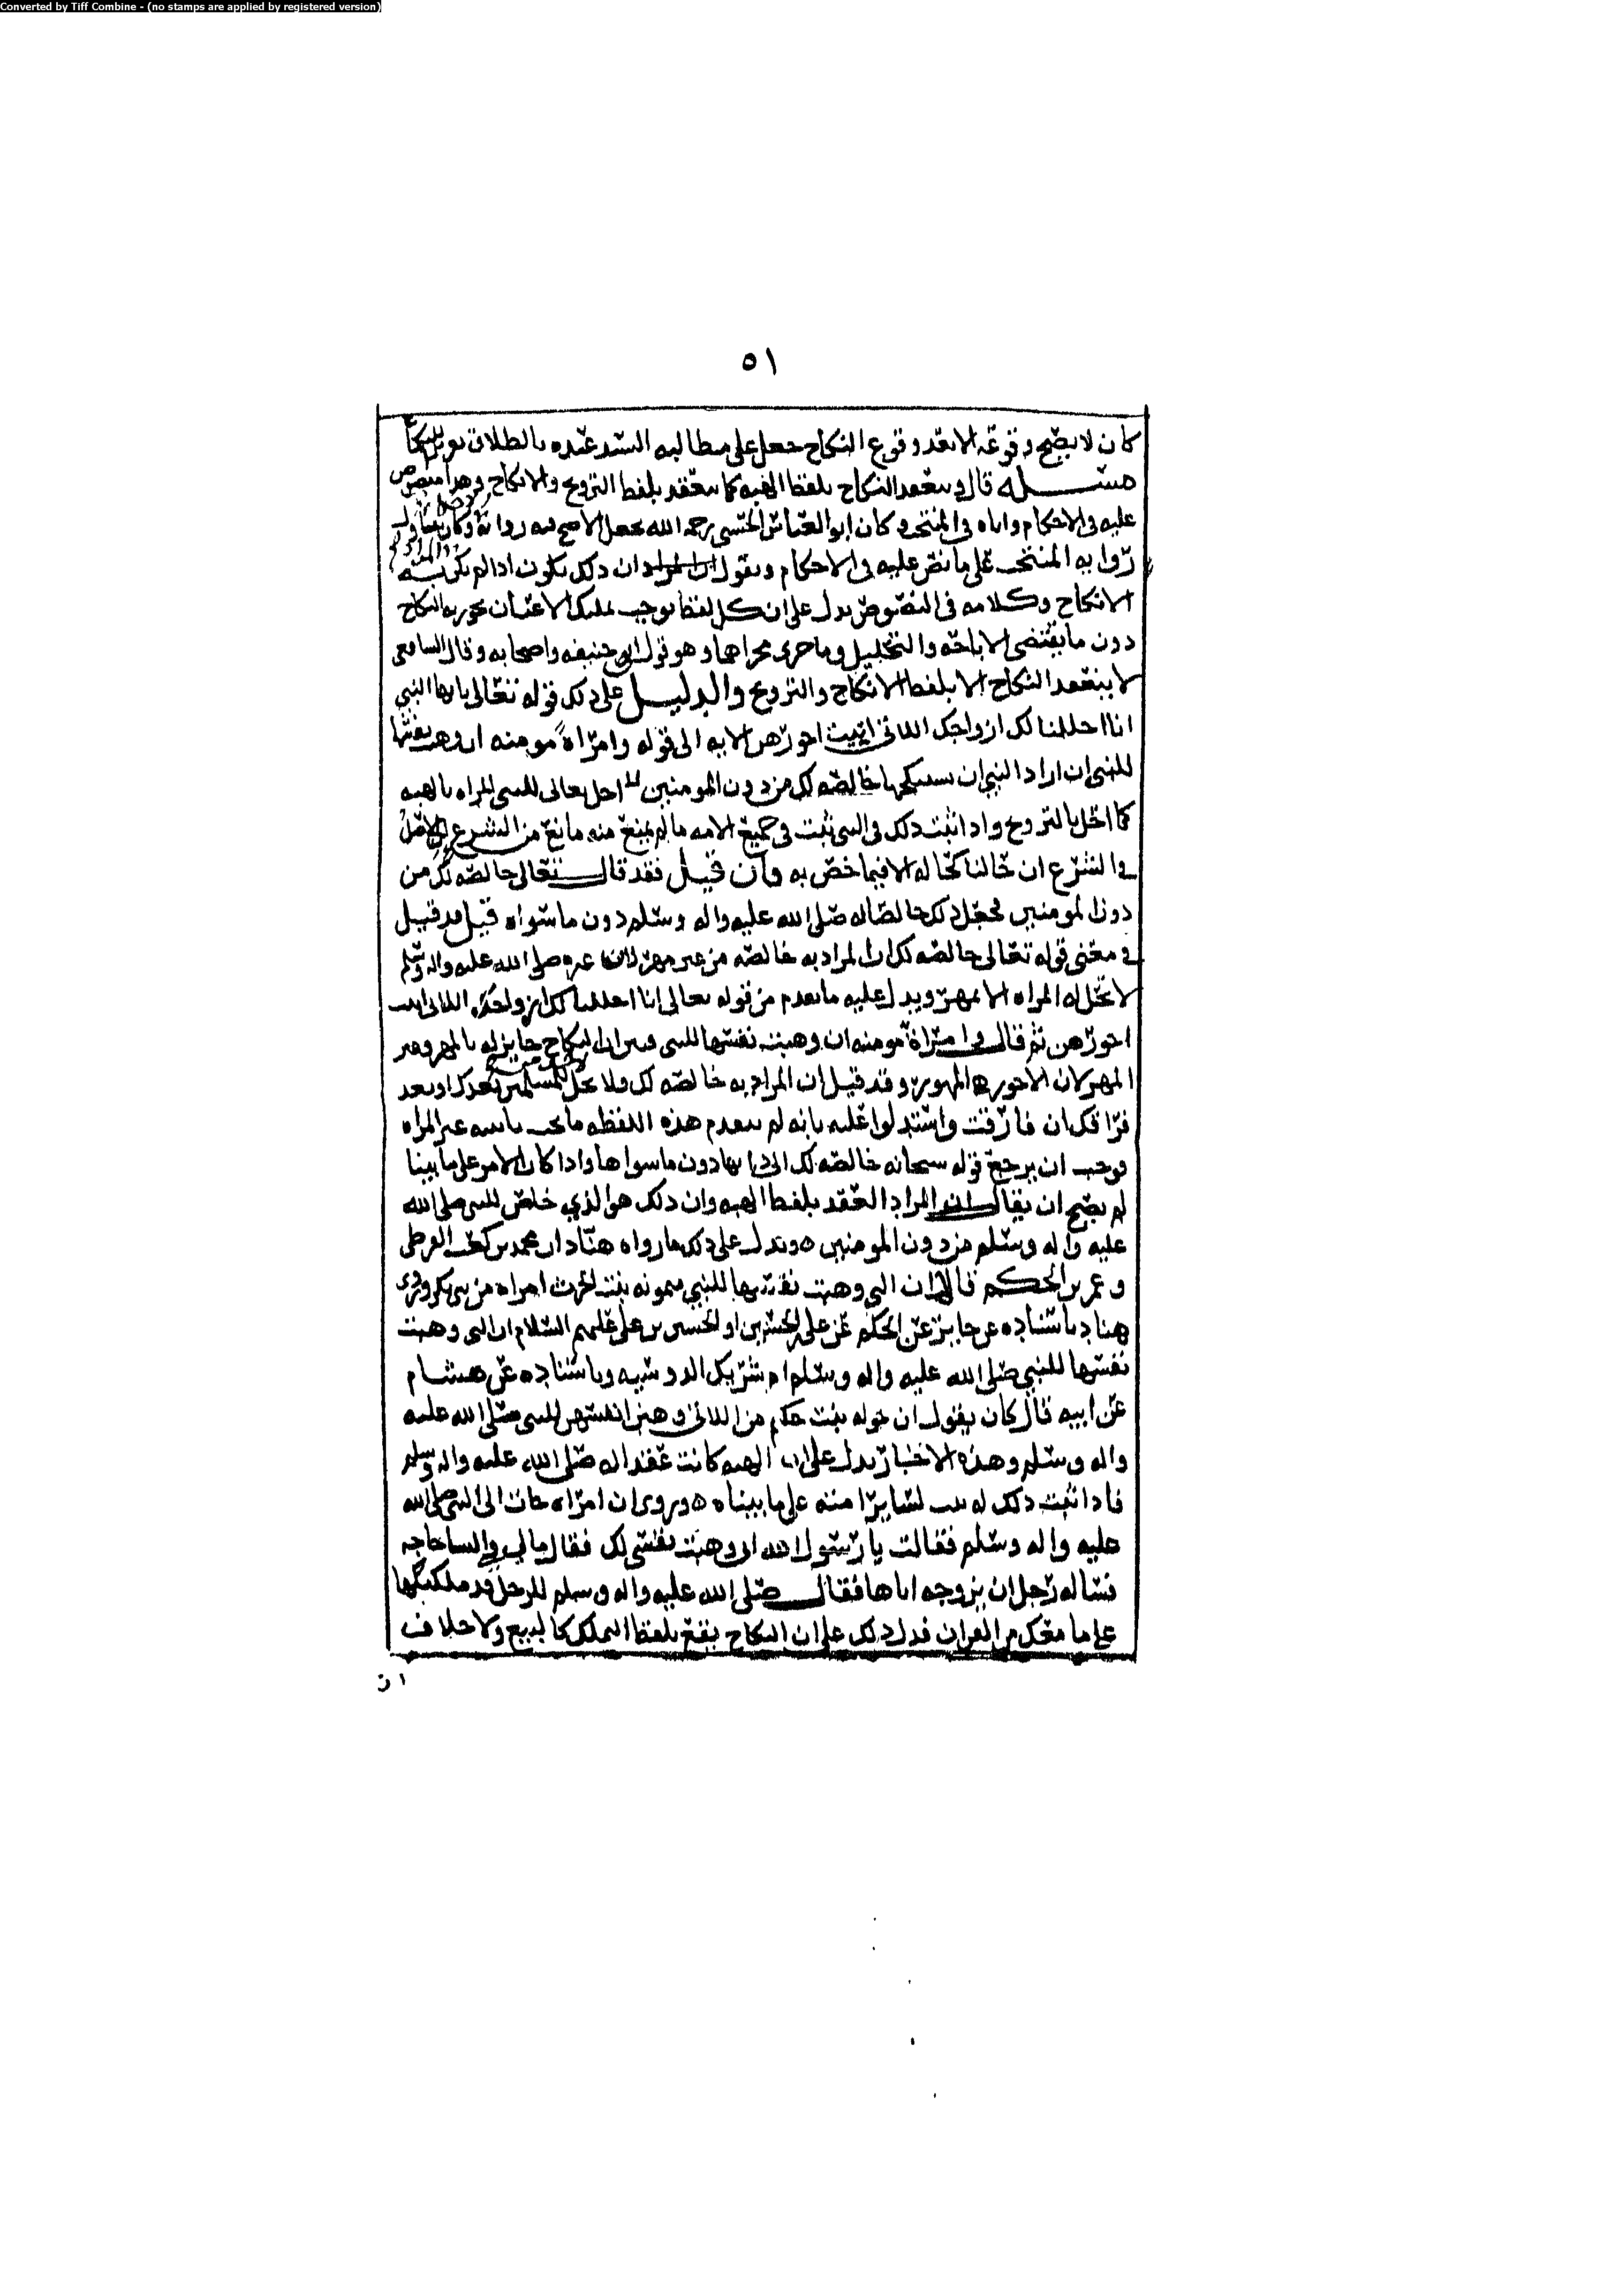 Converted by Tiff Combine - (no stamps are applied by registered version)
٥١
كان لا يصح وقوعه الا بعد وقوع النكاح جعل على مطالبه السيد عبده بالطلاق
مسله قال وينعقد النكاح بلفظ الهبه كما ينعقد بلفظ التزويج والانكاح وهدا منصوص
عليه في الاحكام واباه في المنتخب وكان ابو العباس الحسني رحمه الله يجعل الاصح
روايه المنتخب على ما نص عليه في الاحكام ويقول ان دلك يكون ادا لم يكن بنيه
الانكاح وكلامه في النصوص يدل على ان كل لفظ يوجب تمليك الاعيان يجوز به النكاح
دون ما يقتضي الاباحه والتحليل وما جرى مجراها وهو قول ابو حنيفه واصحابه وقال الشافعي
لا ينعقد النكاح الا بلفظ الانكاح والتزويج والدليل على دلك قوله تعالى يايها النبي
انا احللنا لك ازواجك اللاتي اتيت اجورهن الايه الى قوله وامراة مومنه ان وهبت نفسها
للنبي ان اراد النبي ان يستنكحها خالصه لك من دون المومنين احل تعالى للنبي المراه بالهبه
كما احل بالتزويج وادا ثبت دلك في النبي ثبت في جميع الامه ما لم يمنع منه مانع من الشرع
في الشرع ان حالنا كحاله الا فيما خص به فان قيل فقد قال تعالى خالصه لك من
دون المومنين فجعل دلك خالصا له صلى الله عليه واله وسلم دون ما سواه قيل قد قيل
في معنى قوله تعالى خالصه لك ان المراد به خالصه من غير مهر لان غيره صلى الله عليه واله وسلم
لا تحل له المراه الا بمهر ويدل عليه ما تقدم من قوله تعالى انا احللنا لك ازواجك اللاتي اتيت
اجورهن ثم قال وامراة مومنه ان وهبت نفسها للنبي فبين ان النكاح جايز له بالمهر وغير
المهر لان الاجور هي المهور وقد قيل ان المراد به خالصه لك ولا تحل للمسلمين بعدك او بعد
فراقك ان فارقت واستدلوا عليه بانه لم يتقدم هذه اللفظه ما يجب تانيثه غير المراه
فوجب ان يرجع قوله سبحانه خالصه لك اليها دون ما سواها وادا كان الامر على ما بينا
لم يصح ان يقال ان المراد العقد بلفظ الهبه وان دلك هو الذي خلص للنبي صلى الله
عليه واله وسلم من دون المومنين ه ويدل على دلك ما رواه هناد ان محمد بن كعب القرظي
وعمر بن الحكم قالا ان التي وهبت نفسها للنبي ميمونه بنت الحرث امراه من بني بكر وروى
هناد باسناده عن جابر عن الحكم عن علي بن الحسين او الحسن بن علي عليهم السلام ان التي وهبت
نفسها للنبي صلى الله عليه واله وسلم ام شريك الدوسيه وباسناده عن هشام
عن ابيه قال كان يقول ان خوله بنت حكيم من اللاتي وهبن انفسهن للنبي صلى الله عليه
واله وسلم وهذه الاخبار يدل على ان الهبه كانت عقدا له صلى الله عليه واله وسلم
فادا ثبت دلك له ثبت لساير امته على ما بيناه ه وروي ان امراه جات الى النبي صلى الله
عليه واله وسلم فقالت يا رسول الله اني وهبت نفسي لك فقال مالي في النسا حاجه
فساله رجل ان يزوجه اياها فقال صلى الله عليه واله وسلم للرجل قد ملكتكها
على ما معك من القران فدل دلك على ان النكاح يقع بلفظ التمليك كالبيع ولا خلاف